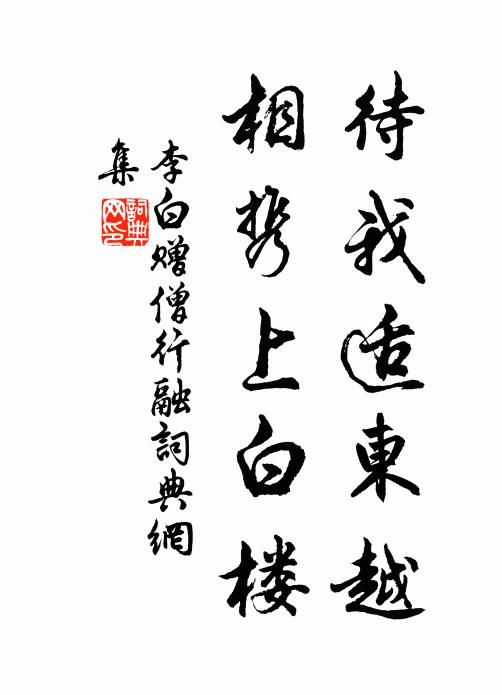 待我适東越
相携上白楼
李白赠僧行融詞典網
集
詞典
网印